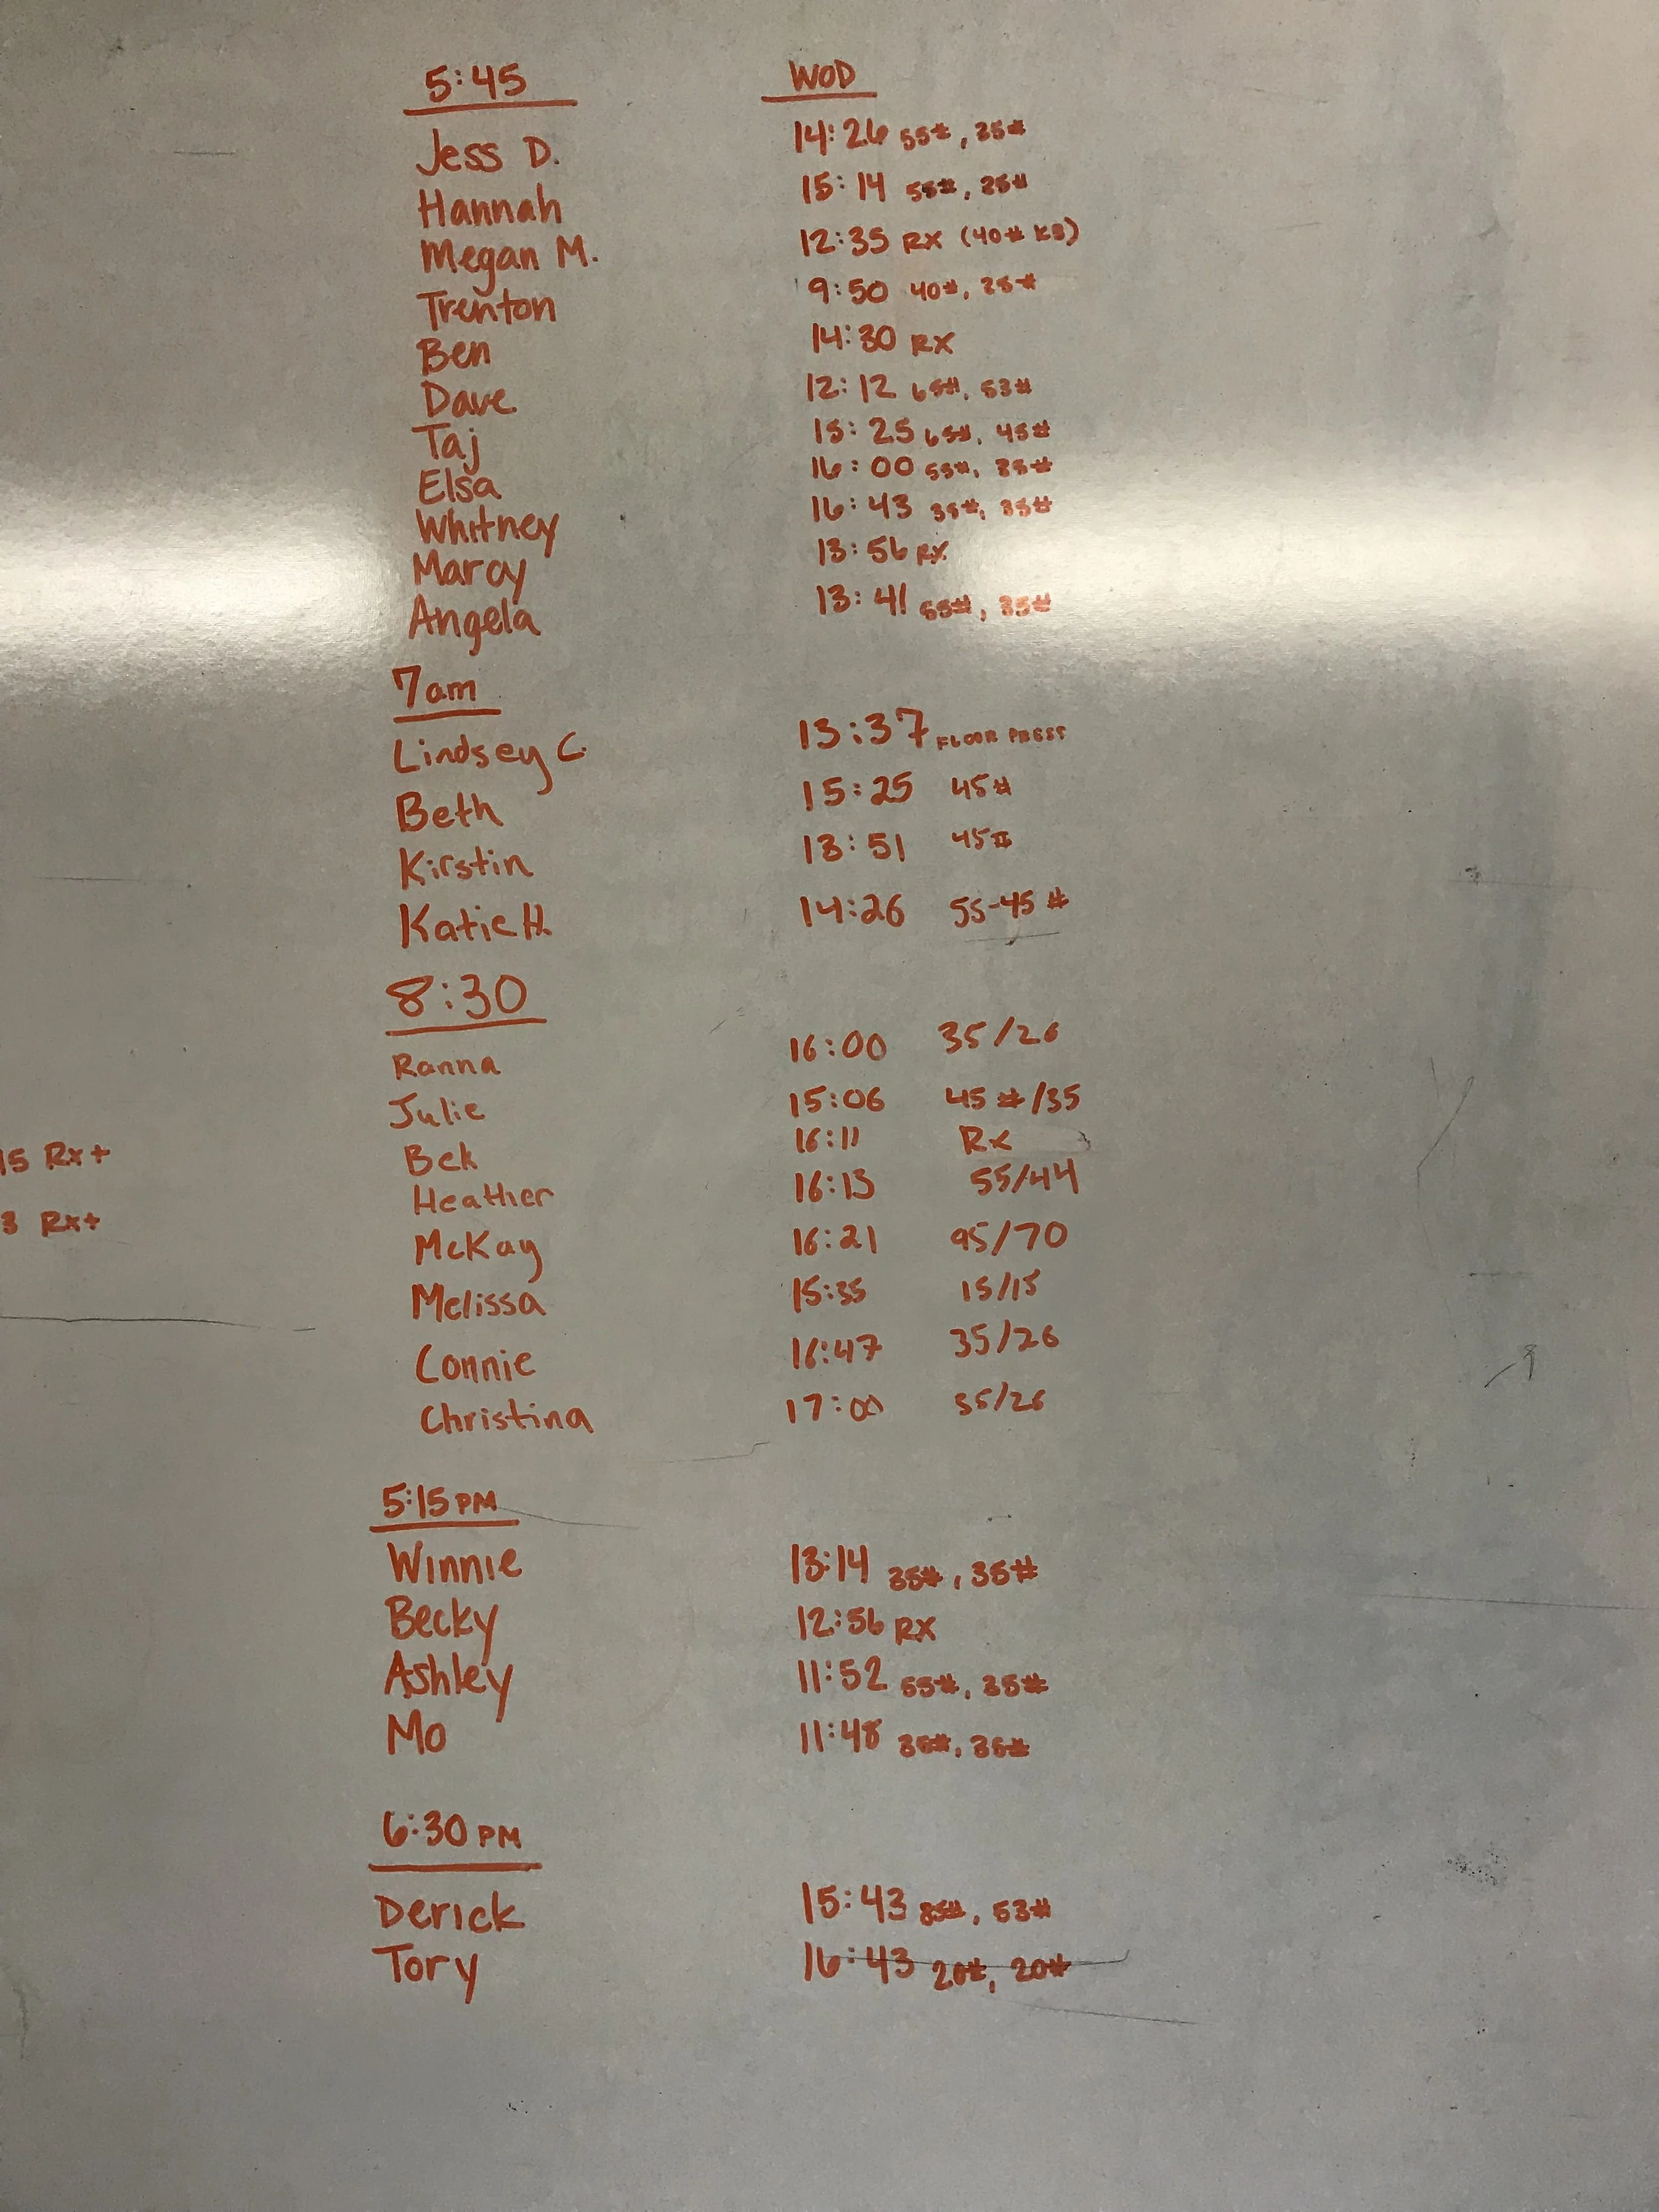 5:45 WOD
Jess D. 14:26 55#, 35#
Hannah 15:14 55#, 25#
Megan M. 12:35 RX (40# KB)
Trenton 9:50 40#, 25#
Ben 14:30 RX
Dave 12:12 65#, 53#
Taj 15:25 65#, 45#
Elsa 16:00 55#, 35#
Whitney 16:43 35#, 35#
Marcy 13:56 RX
Angela 13:41 55#, 35#
7am
Lindsey C. 13:37 FLOOR PRESS
Beth 15:25 45#
Kirstin 13:51 45#
Katie H. 14:26 55-45#
8:30
Ranna 16:00 35/26
Julie 15:06 45#/35
15 Rx+
Bek 16:11 Rx
Heather 16:13 55/44
3 Rx+
McKay 16:21 95/70
Melissa 15:35 15/15
Connie 16:47 35/26
Christina 17:00 35/26
5:15 PM
Winnie 13:14 35#, 35#
Becky 12:56 RX
Ashley 11:52 55#, 35#
Mo 11:48 35#, 35#
6:30 PM
Derick 15:43 85#, 53#
Tory 16:43 20#, 20#